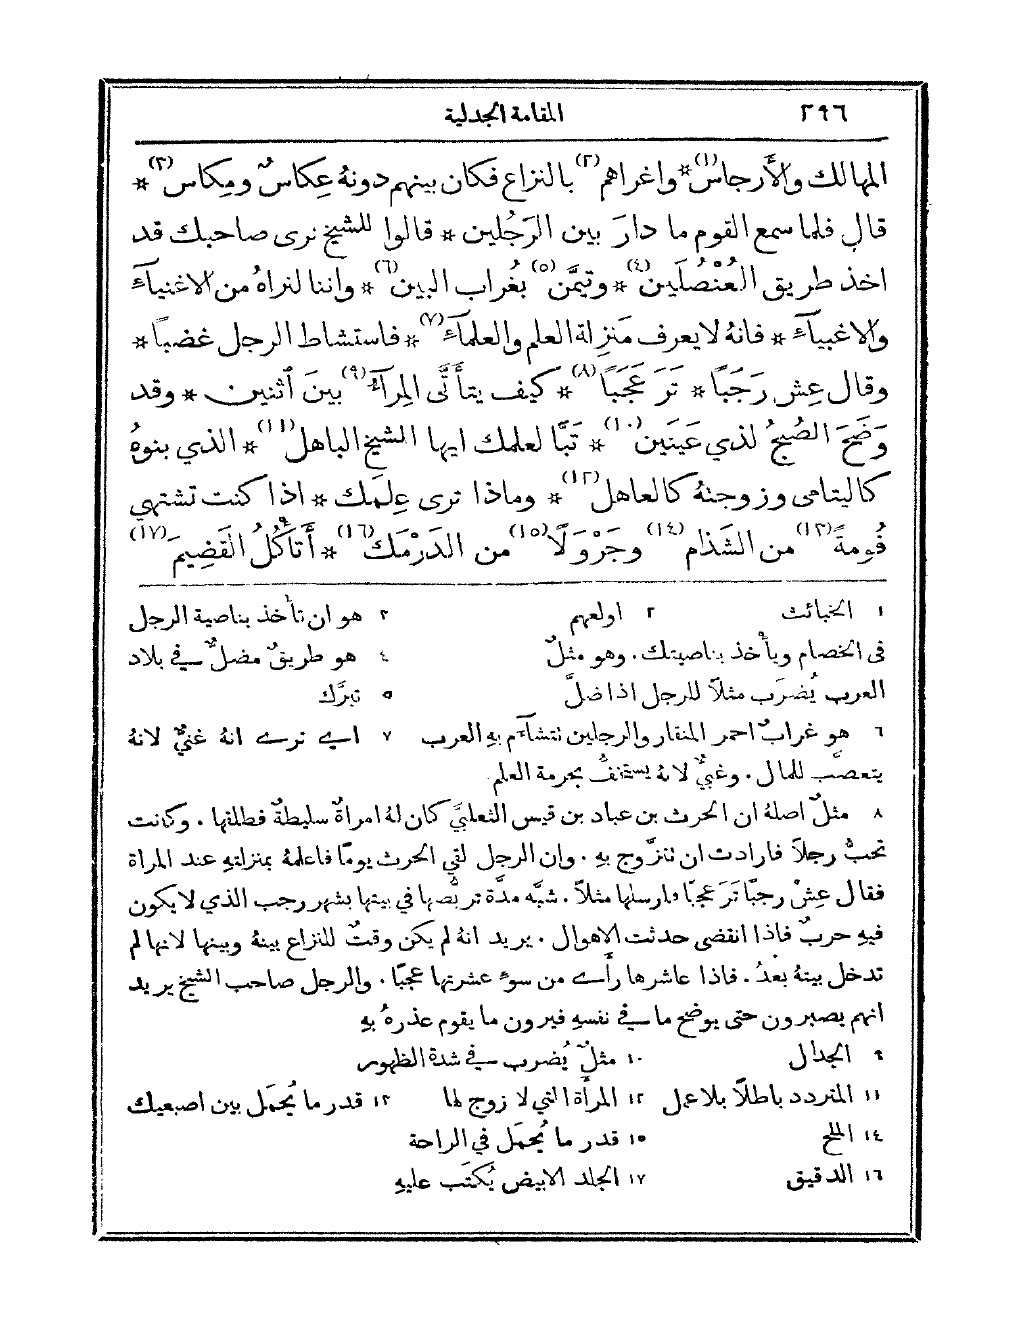 ٢٩٦ المقامة الجدلية
المهالك والأرجاس(١)* واغراهم(٢) بالنزاع فكان بينهم دونهُ عِكاسٌ ومِكاس(٣)*
قال فلما سمع القوم ما دارَ بين الرَجُلين* قالوا للشيخ نرى صاحبك قد
اخذ طريق العُنْصُلَين(٤)* وتيمَّن(٥) بغُراب البين(٦)* واننا لنراهُ من الاغنيآء
والاغبيآء* فانهُ لا يعرف مَنزلة العلم والعلمآء(٧)* فاستشاط الرجل غضباً*
وقال عِش رَجَباً* تَرَ عَجَباً(٨)* كيف يتأَتَّى المِرآءُ(٩) بينَ اثنين* وقد
وَضَحَ الصُبحُ لذي عَينَين(١٠)* تَبًّا لعلمك ايها الشيخ الباهل(١١)* الذي بنوهُ
كاليتامى وزوجتهُ كالعاهل(١٢)* وماذا ترى عِلمَك* اذا كنت تشتهي
فُومةً(١٣) من الشَذام(١٤) وجَرْوَلًا(١٥) من الدَرْمَك(١٦)* أَتأكُلُ القَضِيمَ(١٧)
١ الخبائث ٢ اولعهم ٣ هو ان تأخذ بناصية الرجل
في الخصام ويأخذ بناصيتك. وهو مثلٌ ٤ هو طريقٌ مضلٌّ في بلاد
العرب يُضرَب مثلاً للرجل اذا ضلَّ ٥ تبرَّك
٦ هو غرابٌ احمر المنقار والرجلين نتشآءم بهِ العرب ٧ اي نرى انهُ غنيٌّ لانهُ
يتعصَّب للمال. وغبيٌّ لانهُ يستخفُّ بحرمة العلم
٨ مثلٌ اصلهُ ان الحرث بن عباد بن قيس الثعلبيَّ كان لهُ امرأةٌ سليطةٌ فطلقها. وكانت
تحبُّ رجلاً فارادت ان نتزَّوج بهِ. وان الرجل لقي الحرث يومًا فاعلمهُ بمنزلتهِ عند المرأة
فقال عِشْ رجبًا تَرَ عجبًا وارسلها مثلاً. شبَّه مدَّة تربُّصها في بيتها بشهر رجب الذي لا يكون
فيهِ حربٌ فاذا انقضى حدثت الاهوال. يريد انهُ لم يكن وقتٌ للنزاع بينهُ وبينها لانها لم
تدخل بيتهُ بعدُ. فاذا عاشرها رأَى من سوء عشرتها عجبًا. والرجل صاحب الشيخ يريد
انهم يصبرون حتى يوضح ما في نفسهِ فيرون ما يقوم عذرهُ بهِ
٩ الجدال ١٠ مثلٌ يُضرب في شدة الظهور
١١ المتردد باطلًا بلا عمل ١٢ المرأة التي لا زوج لها ١٣ قدر ما يُحمَل بين اصبعيك
١٤ الملح ١٥ قدر ما يُحمَل في الراحة
١٦ الدقيق ١٧ الجلد الابيض يُكتَب عليهِ